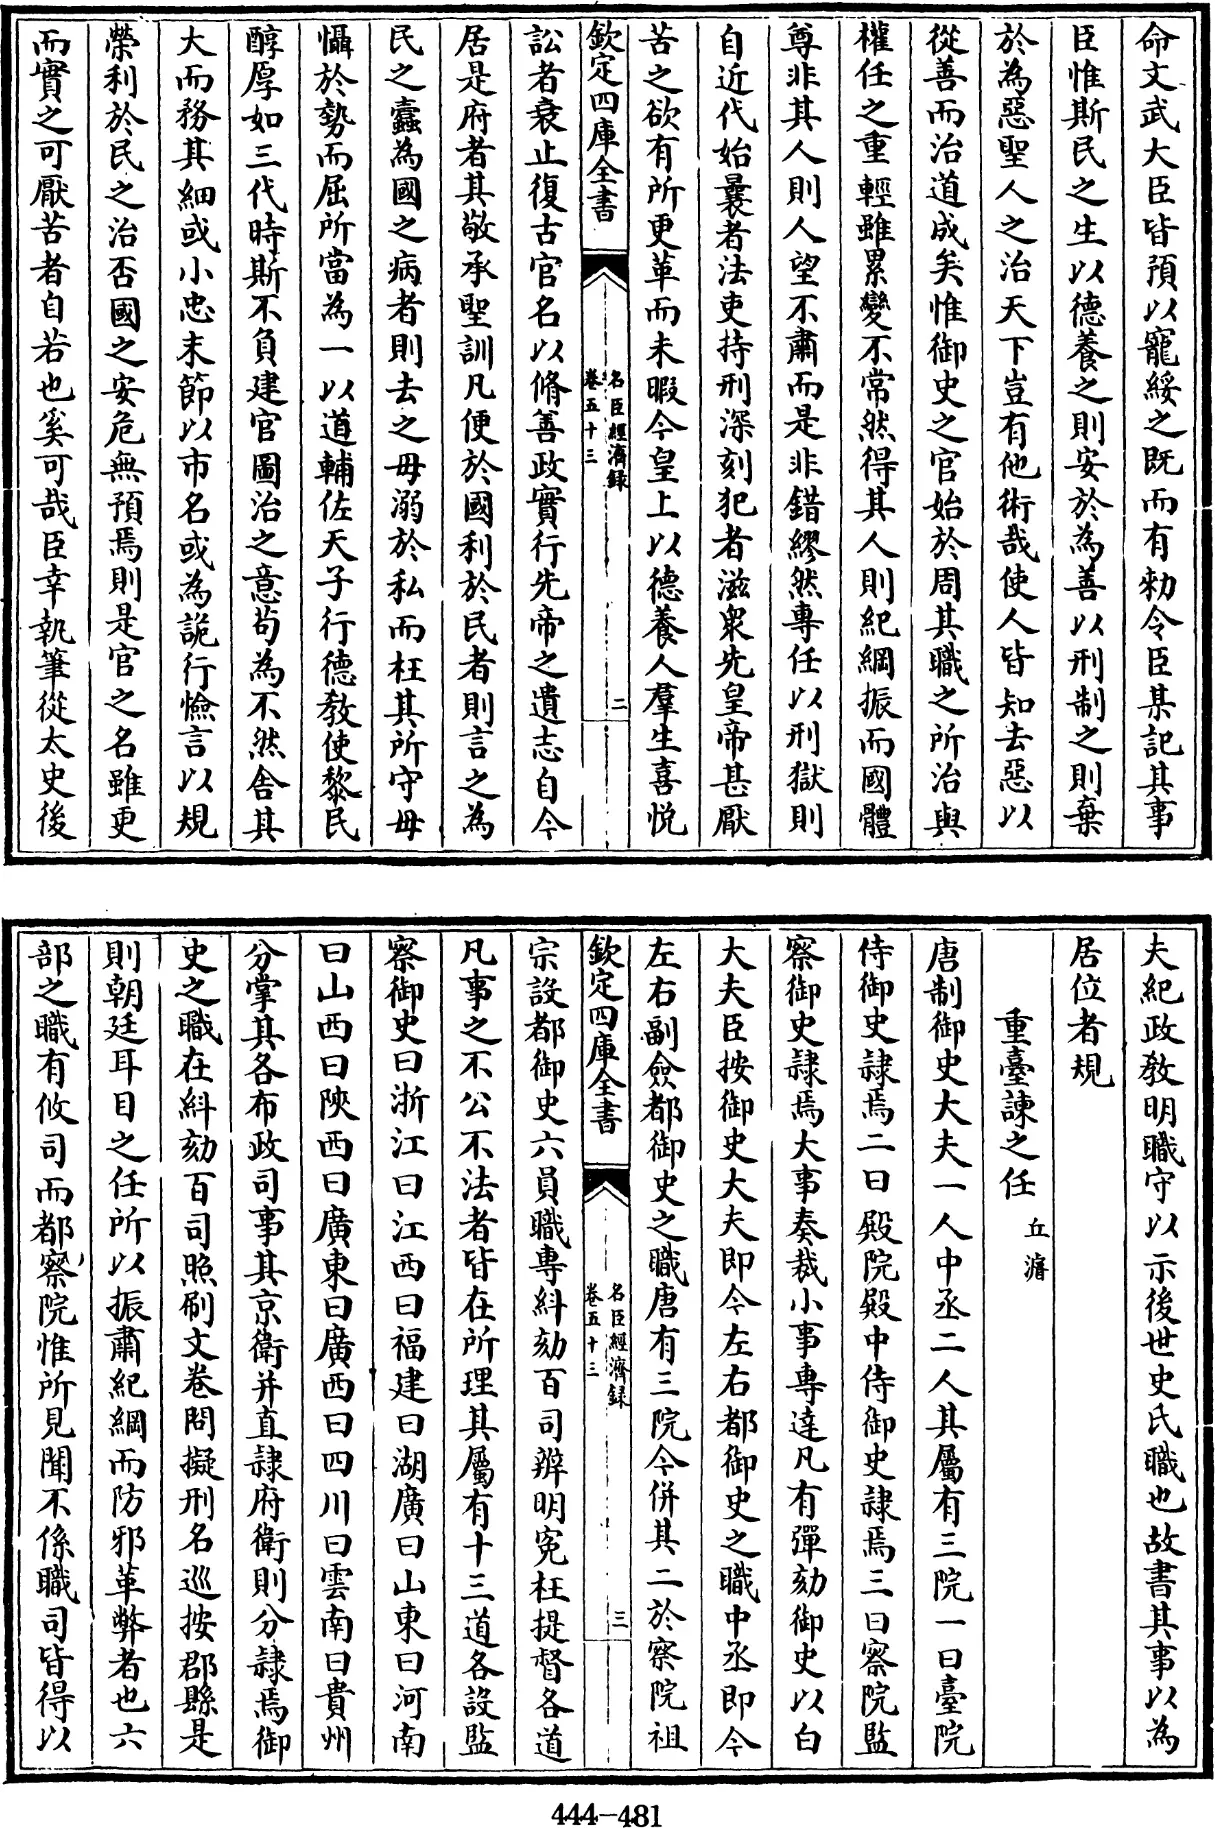 命文武大臣皆預以寵綏之既而有勑令臣某記其事
臣惟斯民之生以德養之則安於為善以刑制之則棄
於為惡聖人之治天下豈有他術哉使人皆知去惡以
從善而治道成矣惟御史之官始於周其職之所治與
權任之重輕雖累變不常然得其人則紀綱振而國體
尊非其人則人望不肅而是非錯繆然專任以刑獄則
自近代始曩者法吏持刑深刻犯者滋衆先皇帝甚厭
苦之欲有所更革而未暇今皇上以德養人羣生喜悦
欽定四庫全書
名臣經濟録
卷五十三
二
訟者衰止復古官名以脩善政實行先帝之遺志自今
居是府者其敬承聖訓凡便於國利於民者則言之為
民之蠧為國之病者則去之毋溺於私而枉其所守毋
懾於勢而屈所當為一以道輔佐天子行德教使黎民
醇厚如三代時斯不負建官圖治之意苟為不然舍其
大而務其細或小忠末節以市名或為詭行憸言以規
榮利於民之治否國之安危無預焉則是官之名雖更
而實之可厭苦者自若也奚可哉臣幸執筆從太史後
夫紀政教明職守以示後世史氏職也故書其事以為
居位者規
重臺諫之任 丘濬
唐制御史大夫一人中丞二人其屬有三院一曰臺院
侍御史隷焉二曰殿院殿中侍御史隷焉三曰察院監
察御史隷焉大事奏裁小事專達凡有彈劾御史以白
大夫臣按御史大夫即今左右都御史之職中丞即今
左右副僉都御史之職唐有三院今併其二於察院祖
欽定四庫全書
名臣經濟録
卷五十三
三
宗設都御史六員職專糾劾百司辨明寃枉提督各道
凡事之不公不法者皆在所理其屬有十三道各設監
察御史曰浙江曰江西曰福建曰湖廣曰山東曰河南
曰山西曰陝西曰廣東曰廣西曰四川曰雲南曰貴州
分掌其各布政司事其京衛并直隷府衛則分隷焉御
史之職在糾劾百司照刷文卷問擬刑名巡按郡縣是
則朝廷耳目之任所以振肅紀綱而防邪革弊者也六
部之職有攸司而都察院惟所見聞不係職司皆得以
444-481